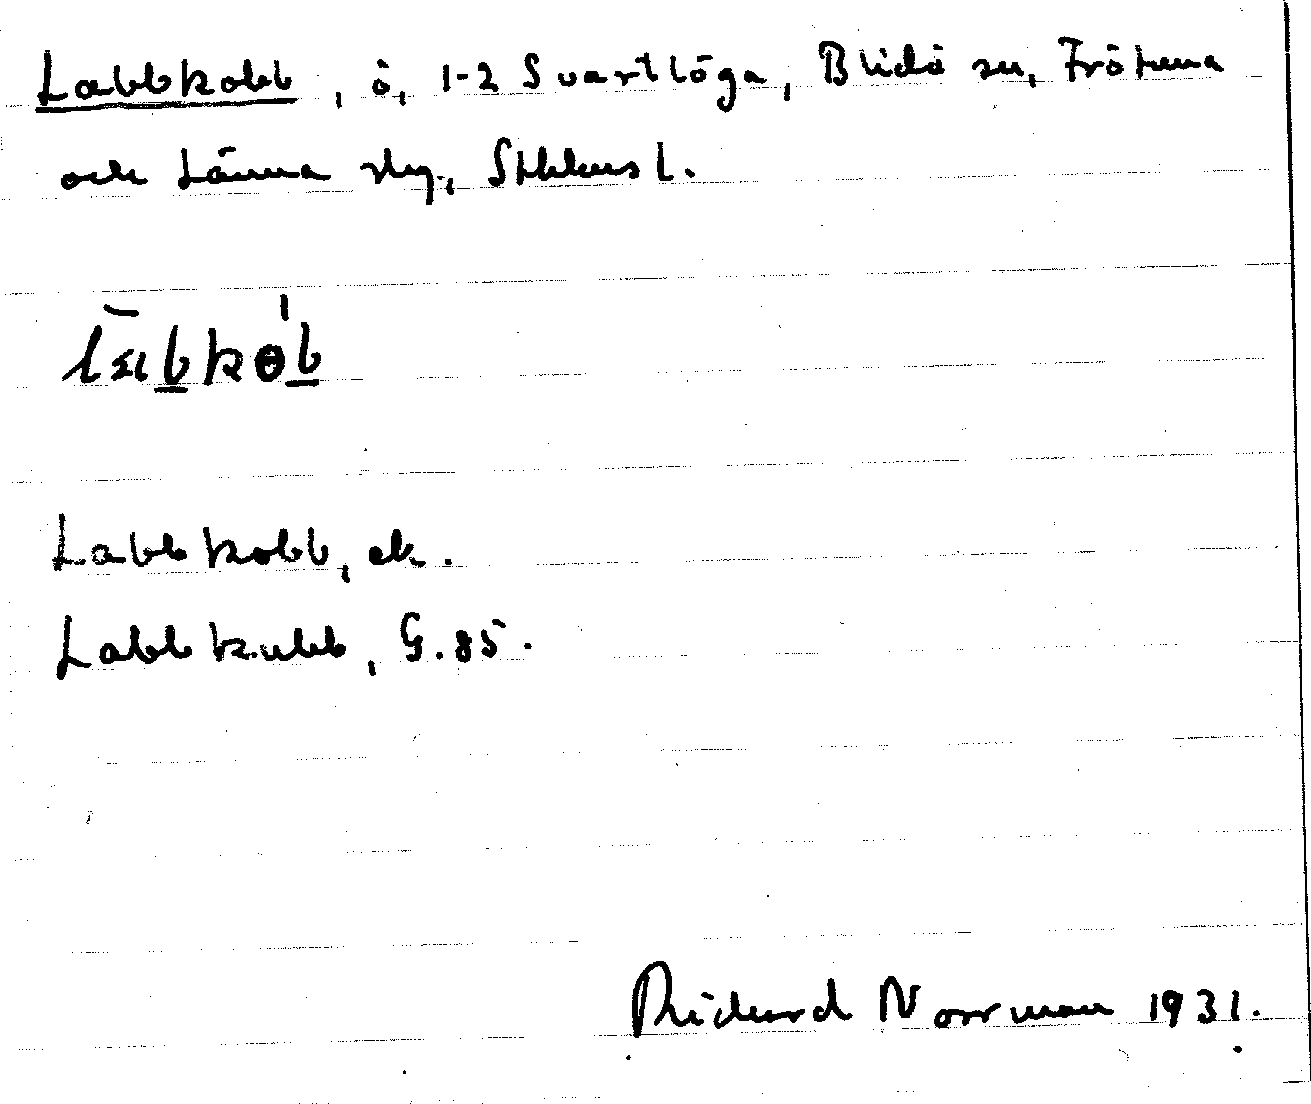 Labbkobb, ö, 1-2 Svartlöga, Blidö sn, Frötuna
och Länna skg., Sthlms l.
Labbkobb, ek.
Labbkubb, G.85.
Rickard Norrman 1931.